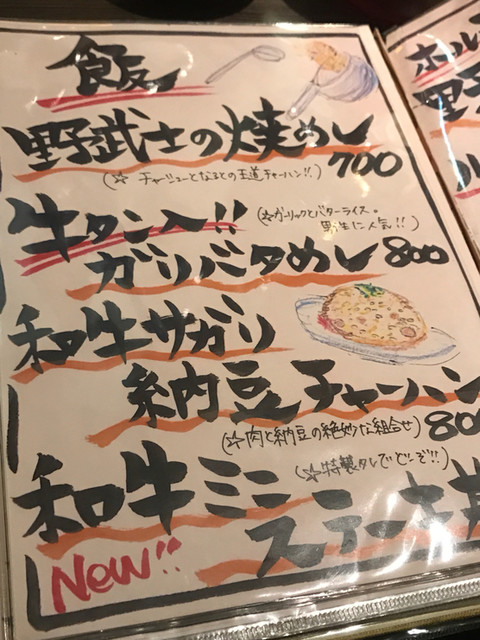 飯
野武士の焼めし
(☆チャーシューとなるとの王道チャーハン!!) 700
牛タン入!!
(☆ガーリックとバターライス。
男性に人気!!)
ガリバタめし 800
和牛サガリ
納豆チャーハン
(☆肉と納豆の絶妙な組合せ) 80
和牛ミニ
(☆特製タレでどうぞ!!
ステーキ丼
New!!
ホル